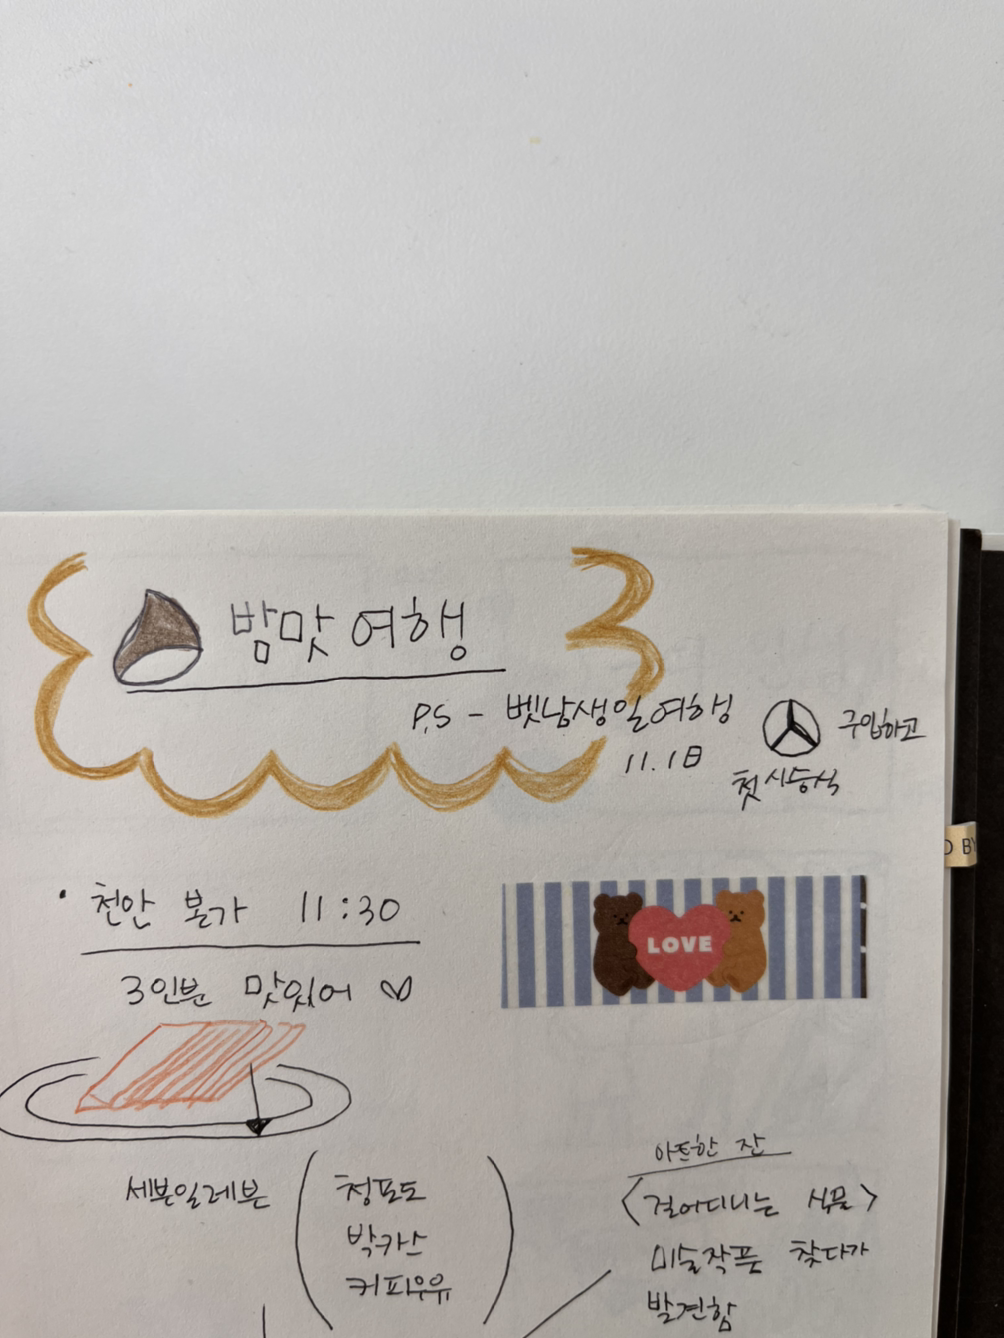 밤맛 여행
P.S - 벳남생일여행
11.1日
구입하고
첫 시승식
천안 본가 11:30
3인분 맛있어
LOVE
D BY
세븐일레븐
청포도
박카스
커피우유
아트한 잔
<걸어다니는 식물>
미술작품 찾다가
발견함